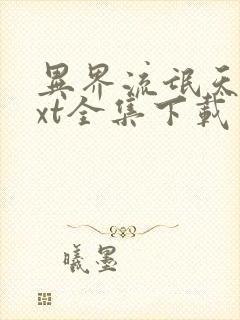 異界流氓天
xt全集下載
曦墨